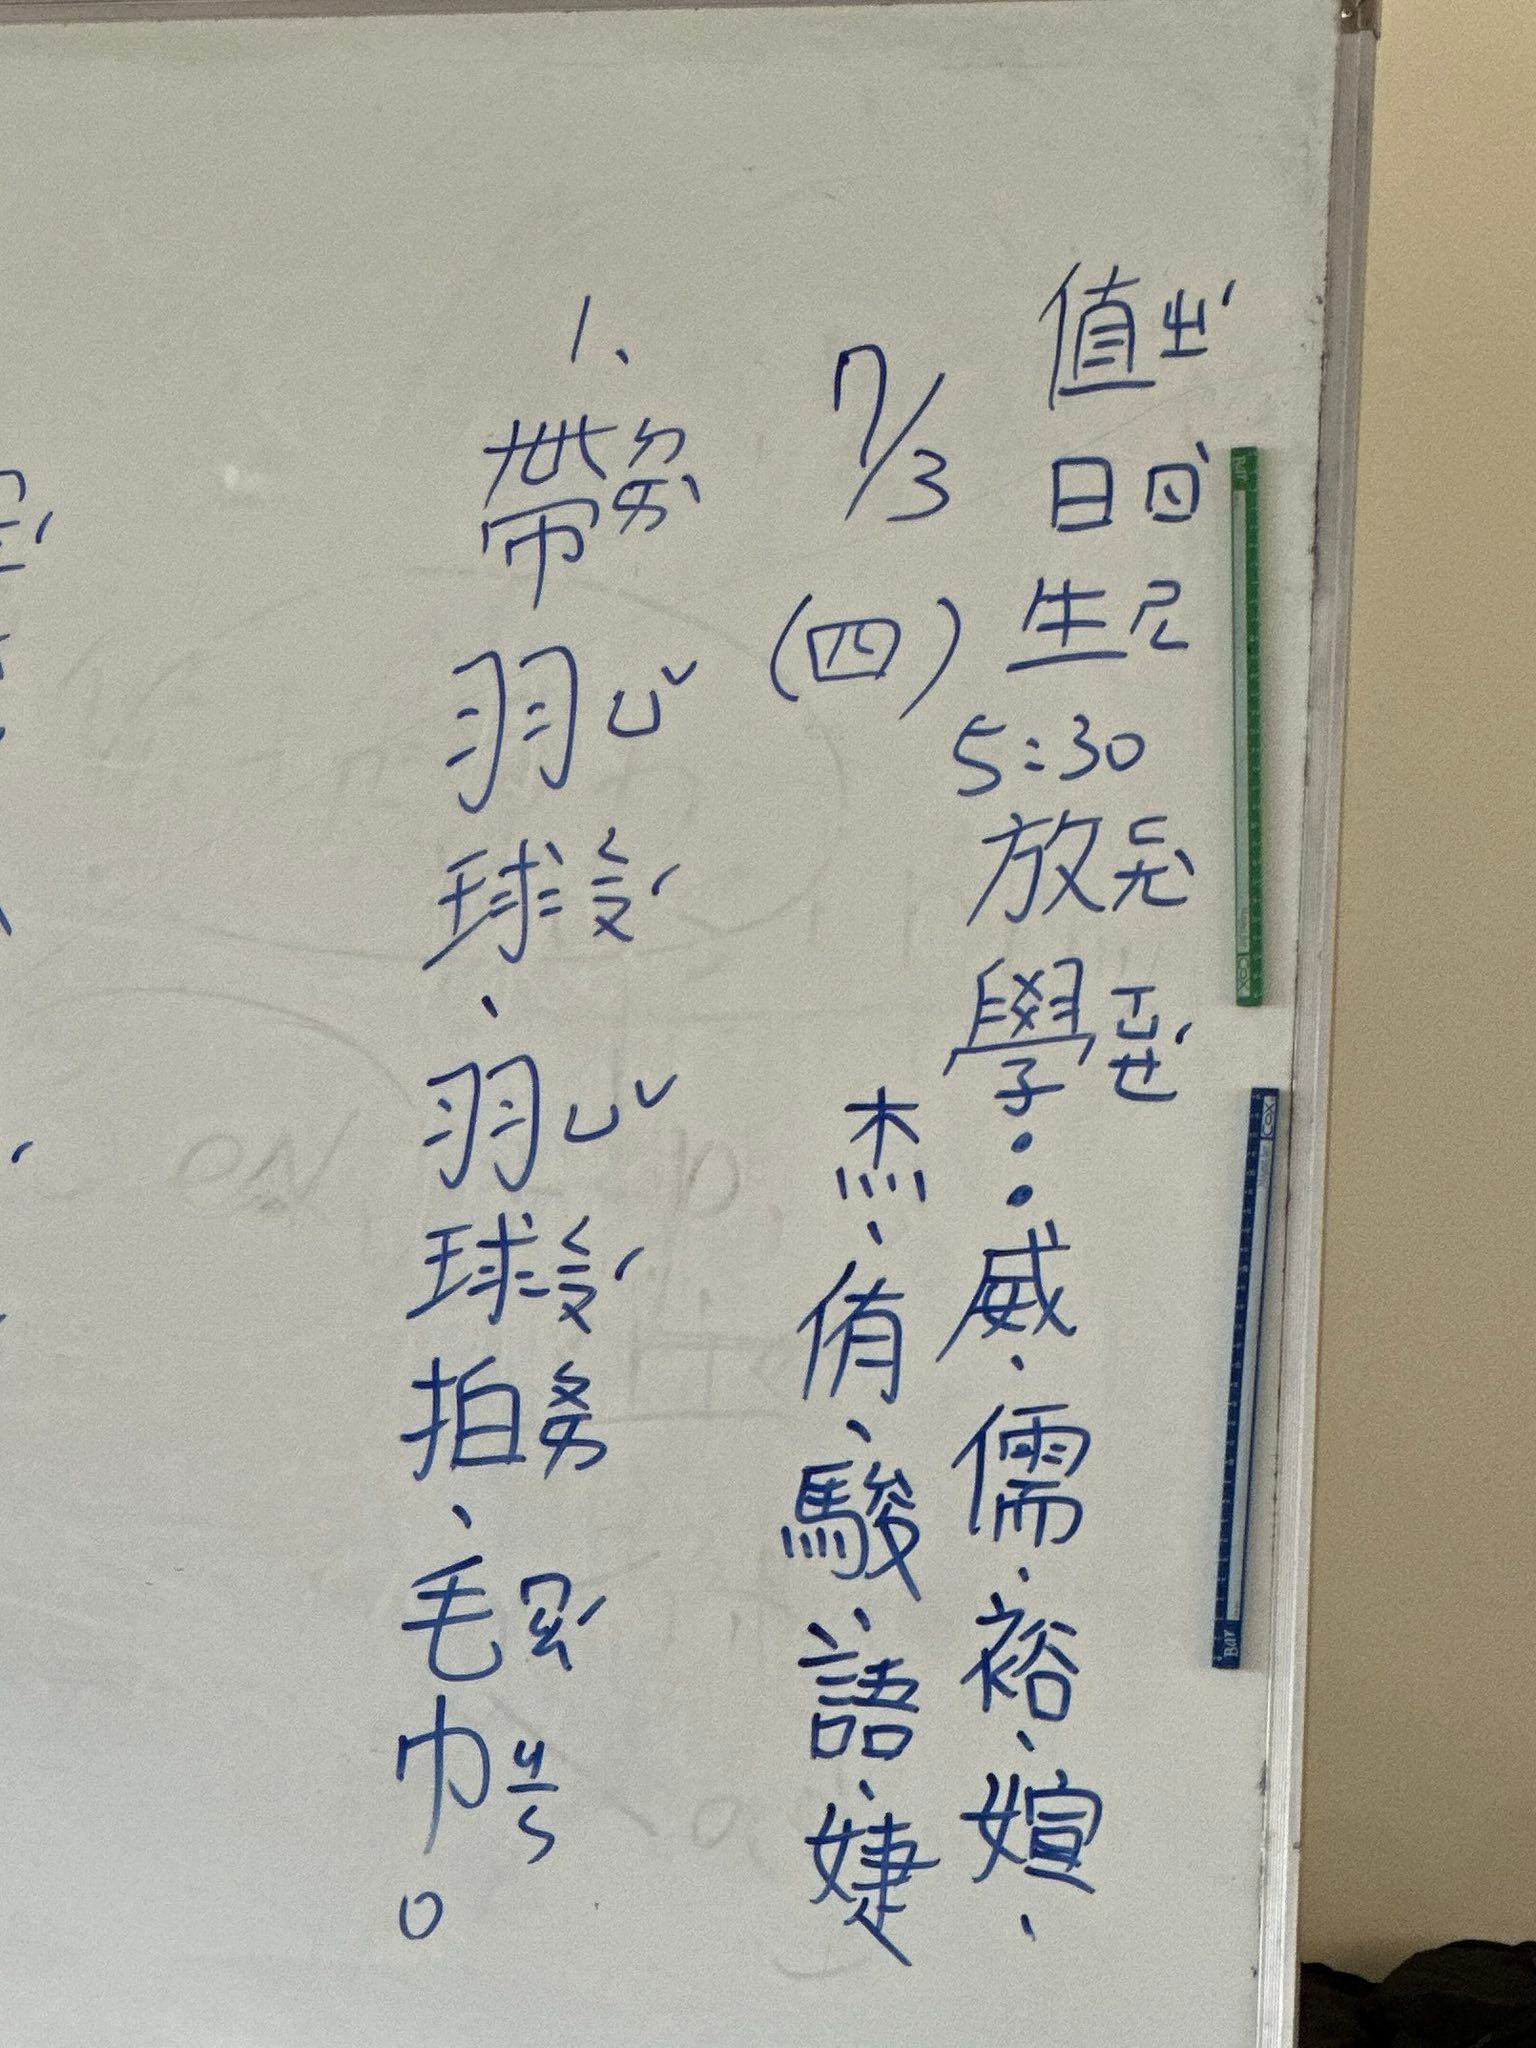 值ㄓˊ日ㄖˋ生ㄕㄥ
5:30放ㄈㄤˋ學ㄒㄩㄝˊ:威、儒、裕、媗、
7/3(四)
杰、侑、駿、語、婕
1、帶ㄉㄞˋ羽ㄩˇ球ㄑㄧㄡˊ、羽ㄩˇ球ㄑㄧㄡˊ拍ㄆㄞ、毛ㄇㄠˊ巾ㄐㄧㄣ。
COX
Bar
COX